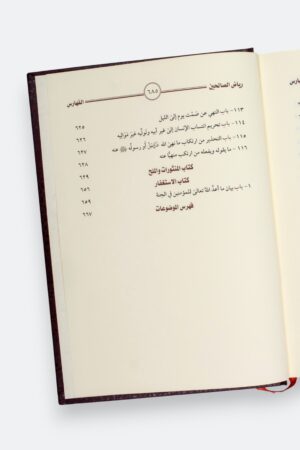 رياض الصالحين ٦٨٥ الفهارس
١١٣ - باب النهي عن صمت يوم إلى الليل ٦٢٥
١١٤ - باب تحريم انتساب الإنسان إلى غير أبيه وتوليه غير مواليه ٦٢٦
١١٥ - باب التحذير من ارتكاب ما نهى الله أو رسوله ﷺ عنه ٦٢٧
١١٦ - باب ما يقوله ويفعله من ارتكب منهيًّا عنه ٦٢٨
كتاب المنثورات والملح ٦٢٩
كتاب الاستغفار ٦٥٦
١ - باب بيان ما أعدَّ الله تعالى للمؤمنين في الجنة ٦٥٩
فهرس الموضوعات ٦٦٧